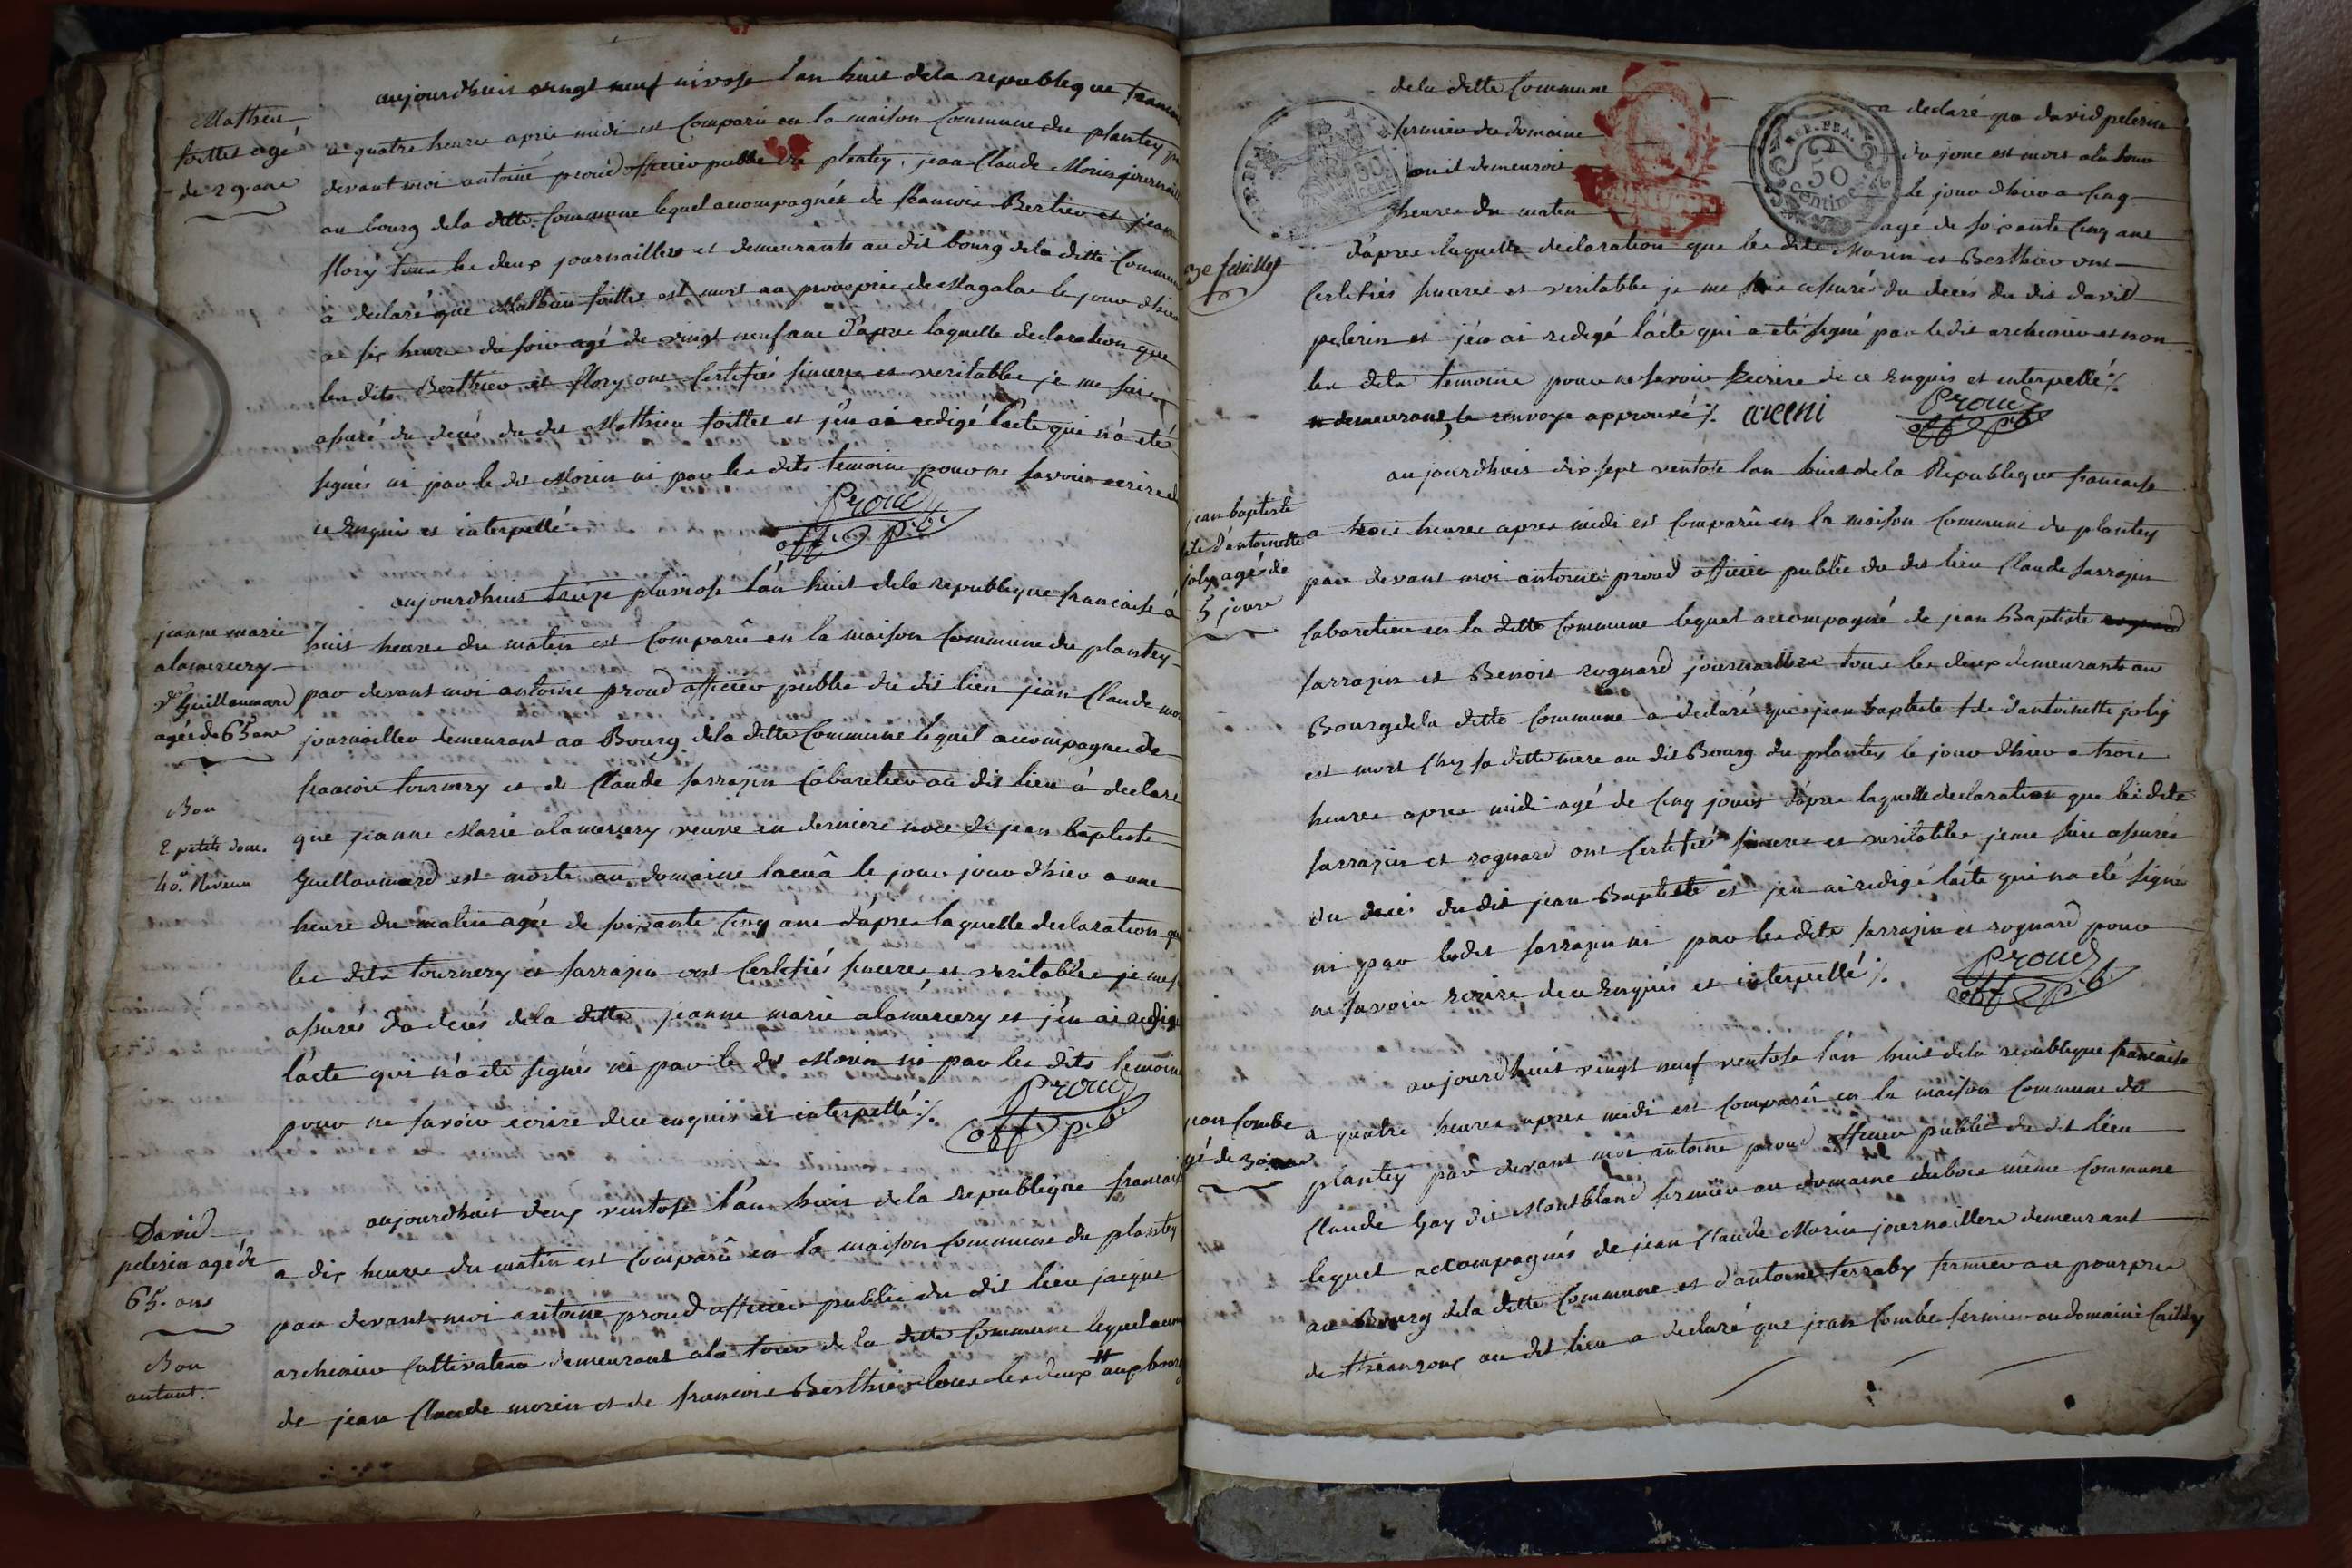 Mathieu
foillet agé
de 29. ans
aujourdhuis vingt neuf nivose l'an huit dela republeque
a quatre heures aprés midi est comparû en la maison commune du plantey
devant moi antoine proud officier public du plantey, jean Claude Morin
au bourg dela ditte Commune lequel accompagnés de francois Bertier et jean
flory tous les deux journaillers et demeurants au dit bourg dela ditte
à declaré que Mathieu foillet est mort au de Magalas le jour d'hier
a six heures du soir agé de vingt neuf ans d'apres laquelle declaration que
les dits Berthier et flory ont Certifiés sincere et veritables je me suis
assuré du decés du dit Mathieu foillet et j'en ai redigé l'acte qui n'a eté
signés ni par le dit Morin ni par les dits temoins pour ne savoir ecrire
ce Enquis et interpellé.
Proud
off p.b.
jeanne marie
alamercery
ve Guillaumard
agée de 65 ans
Bon
2 petits dom.
40.
aujourdhuis treize pluviose l'an huit dela republique francaise à
huit heures du matin est Comparû en la maison Commune du plantey
par devant moi antoine proud officier public du dit lieu jean Claude
journaillier demeurant au Bourg dela ditte Commune lequel accompagné de
francois tournery et de Claude sarrazin Cabaretier au dit lieu à declaré
que jeanne Marie alamercery veuve en derniere noce de jean baptiste
Guillaumard est morte au domaine le jour jour d'hier a une
heure du matin agée de soixante cinq ans d'apres laquelle declaration
les dits tournery et sarrazin ont Certifiés sincere et veritable je me
assurés du decés dela ditte jeanne marie alamercery et j'en ai redigé
l'acte qui n'a eté signés ni par le dit Morin ni par les dits temoins
pour ne savoir ecrire de ce enquis et interpellé ٪
Proud
off p.b
David
pelerin agé de
65. ans
Bon
autant.
aujourdhuis deux ventose l'an huit dela republeque
a dix heures du matin est Comparû en la maison commune du plantey
par devant moi antoine proud officier public du dit lieu jacque
archenier Cultivateur demeurant ala tour de la ditte Commune lequel
de jean Claude morin et de francois Berthier tous les deux # au
dela ditte Commune a declaré que david pelerin
fermier du domaine du jonc est mort ala tour
ou il demeuroit le jour d'hier a Cinq
heures du matin agé de soixante Cinq ans
REP. FRA. 50 Centimes
3e feuillet
d'apres laquelle declaration que les dits Morin et Berthier ont
Certifiés sincere et veritable je me suis assuré du deces du dit david
pelerin et j'en ai redigé l'acte qui a eté signé par le dit archenier et non
les dits temoins pour ne savoir Ecrire de ce Enquis et interpellé ٪
# demeurant, le renvoye approuvé ٪.
Proud
off p.b
jean baptiste
d'antoinette
joly agé de
5 jours
aujourdhuis dix sept ventose l'an huit dela Republeque francaise
a trois heures apres midi est Comparû en la maison Commune du plantey
par devant moi antoine proud officier public du dit lieu Claude sarrazin
Cabaretier en la ditte Commune lequel accompagné de jean Baptiste
sarrazin et Benoit rognard journaillers tous les deux demeurants au
Bourg dela ditte Commune a declaré que jean baptiste d'antoinette joly
est mort Chez sa ditte mere au dit Bourg du plantey le jour d'hier a trois
heures apres midi agé de Cinq jours d'apres laquelle declaration que les dits
sarrazin et rognard ont Certifié sincere et veritable je me suis assurés
du decé du dit jean Baptiste et j'en ai redigé l'acte qui n'a eté signé
ni par le dit sarrazin ni par les dits sarrazin et rognard pour
ne savoir Ecrire de ce Enquis et interpellé ٪
Proud
off p.b
jean Combe
aujourdhuis vingt neuf ventose l'an huit dela republeque francaise
a quatre heures apres midi est Comparû en la maison Commune du
plantey par devant moi antoine proud officier public du dit lieu
Claude Gay dit Montbland fermier au domaine dubois même Commune
lequel accompagnés de jean Claude Morin journaillers demeurant
au Bourg dela ditte Commune et d'antoine terraby fermier au
de au dit lieu a declaré que jean Combe fermier au domaine